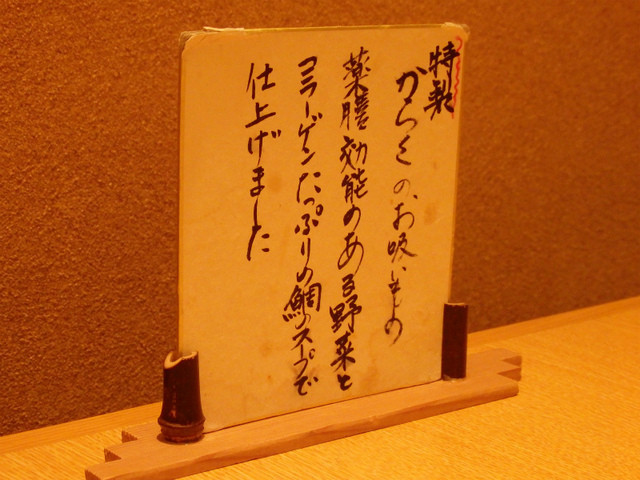 特製
からくのお吸いもの
薬膳効能のある野菜と
コラーゲンたっぷりの鯛のスープで
仕上げました